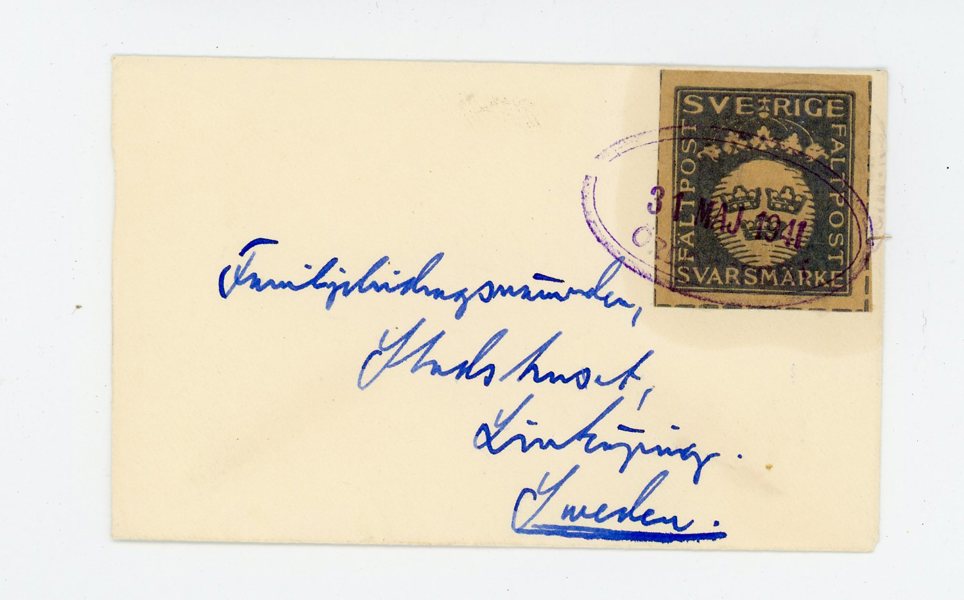 SVERIGE
FÄLTPOST
FÄLTPOST
SVARSMÄRKE
31 MAJ 1941
Familjebidragsnämnden,
Stadshuset,
Linköping.
Sweden.